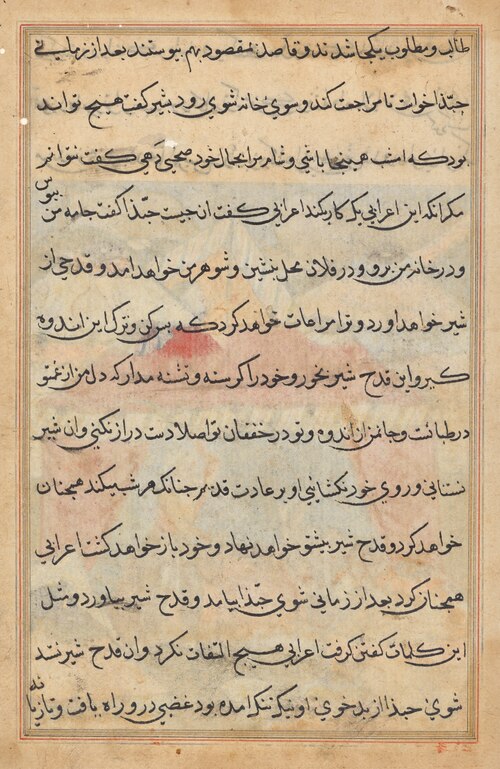 طالب و مطلوب یکجا شدند و قاصد بمقصود بهم پیوستند بعد از زمانی
حبّذا خواست تا مراجعت کند و سوی خانه شوی رود بشیر کفت هیچ تواند
بود که امشب همینجا باشی و شام مرا بجمال خود صبحی دهی کفت نتوانم
مکر آنکه این اعرابی یک کار بکند اعرابی کفت آن چیست حبّذا کفت جامه من بپوش
و در خانه من برو و در فلان محل بنشین و شوهر من خواهد آمد و قدحی از
شیر خواهد آورد و ترا مراعات خواهد کرد که بس کن و ترک این اندوه
کیر و این قدح شیر بخور و خود را کرسنه و تشنه مدار که دل من از غم تو
در طپانست و جانم از اندوه و تو در خفقان تو اصلا دست دراز نکنی و آن شیر
نستانی و روی خود نکشائی او بر عادت قدیم چنانکه هر شب میکند همچنان
خواهد کرد و قدح شیر پیش تو خواهد نهاد و خود باز خواهد کشت اعرابی
همچنان کرد بعد از زمانی شوی حبّذا بیامد و قدح شیر بیاورد و مثل
این کلمات کفتن کرفت اعرابی هیچ التفات نکرد و آن قدح شیر نستد
شوی حبّذا از بدخوی او نیک تنک آمده بود غضبی درو راه یافت و تازیانه